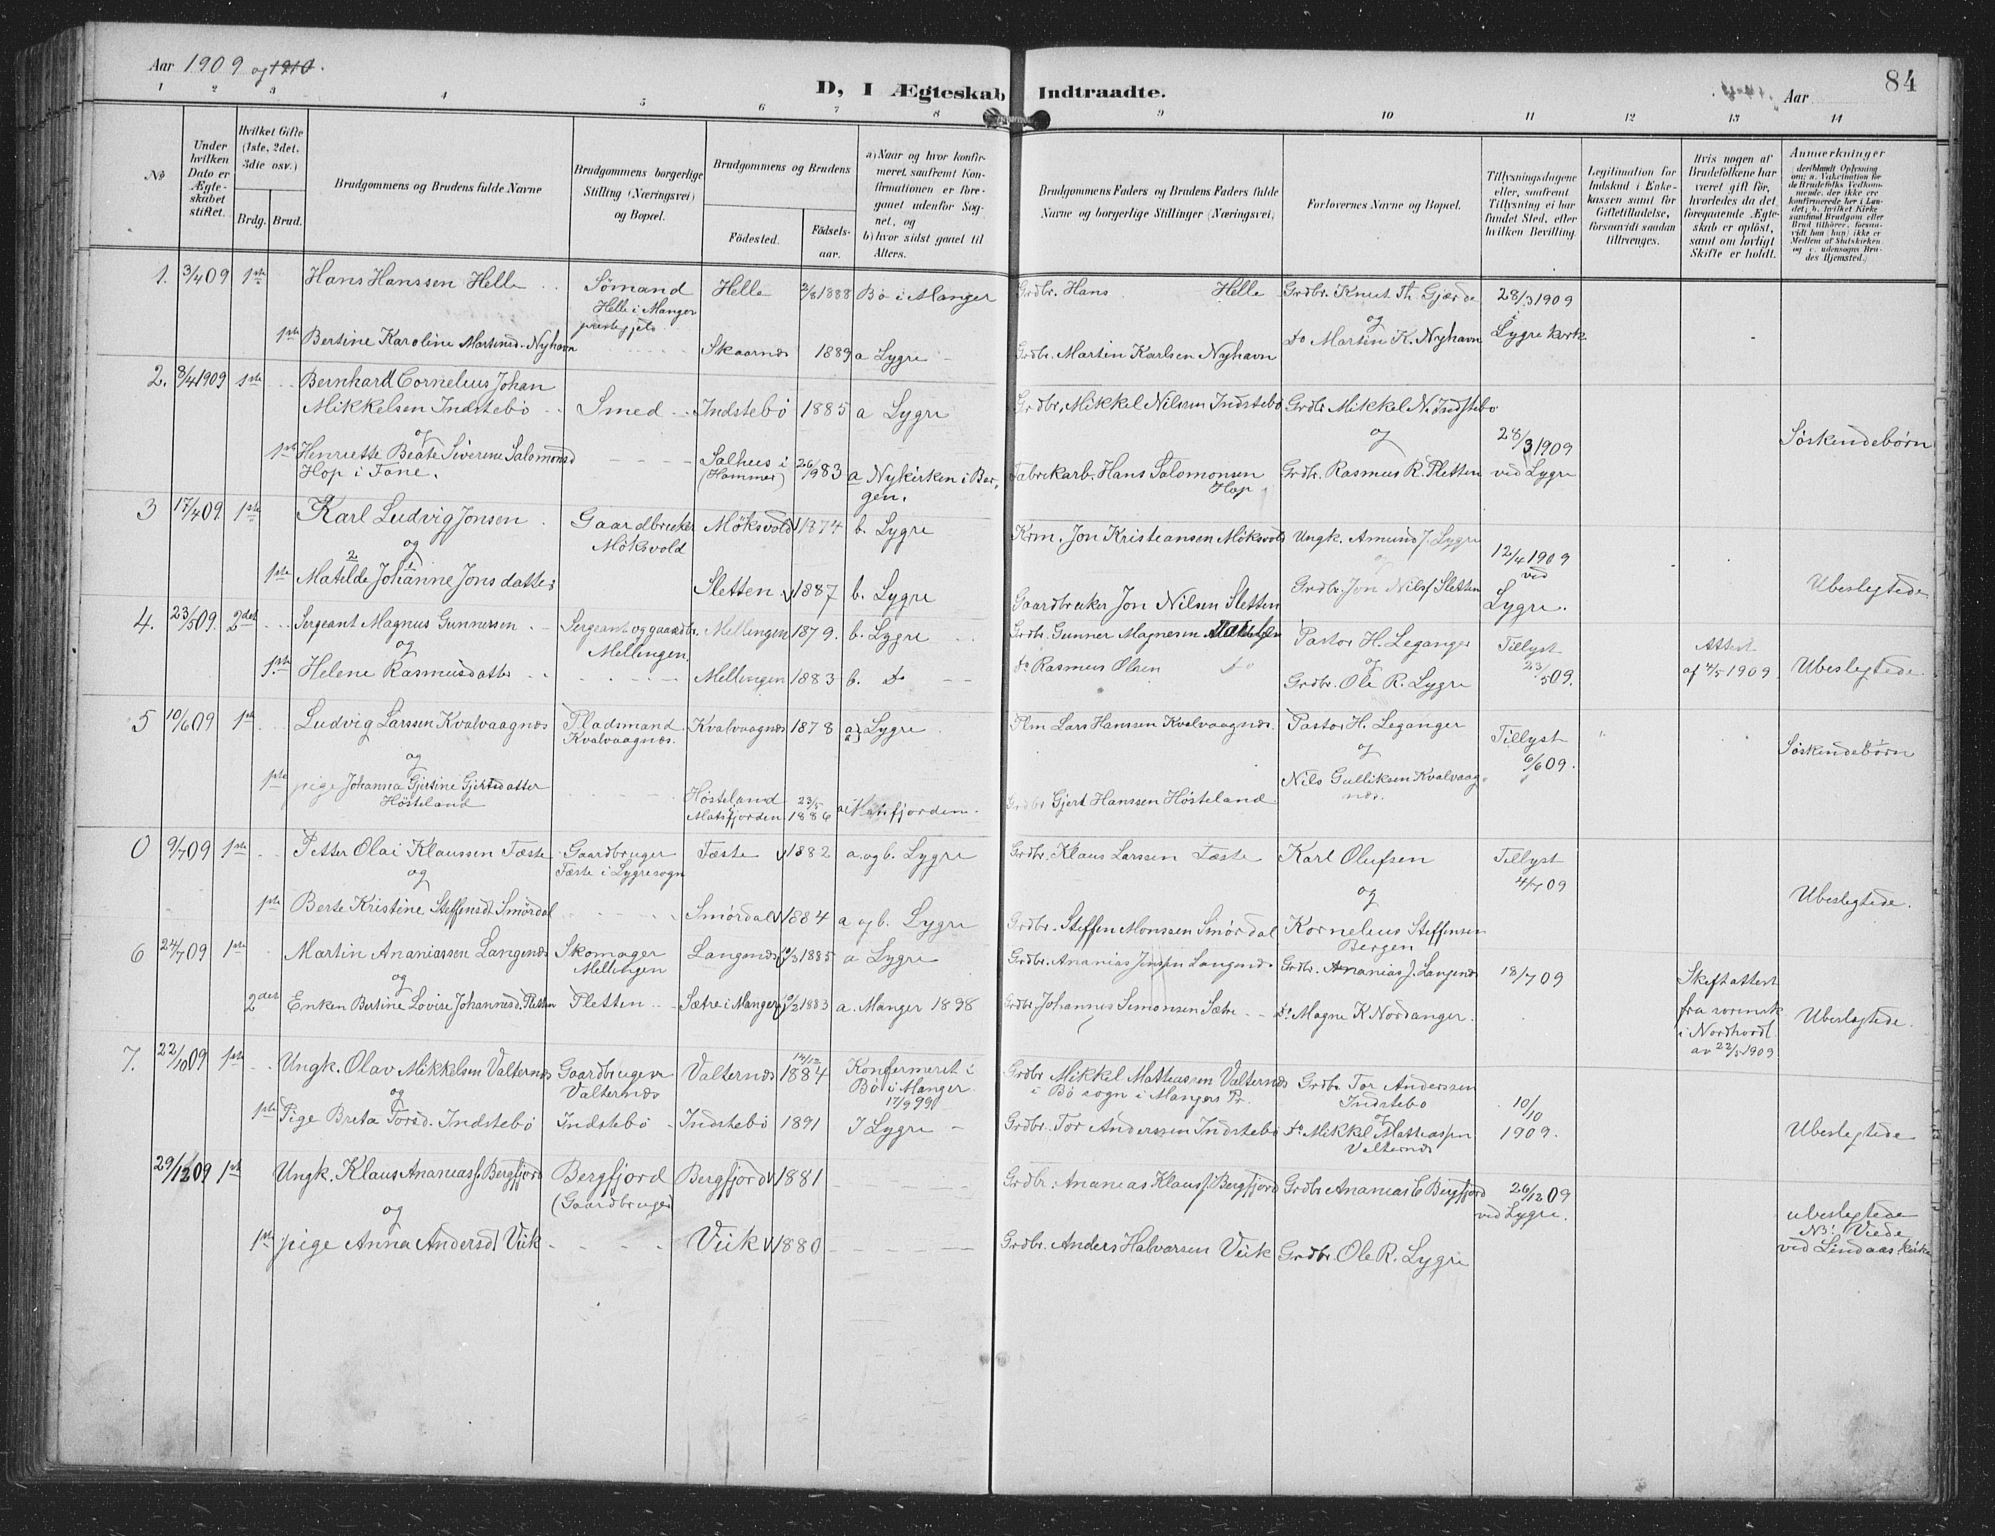 Aar 1909 og 1910.
D, I Ægteskab Indtraadte.
Aar
84
1 2 3 4 5 6 7 8 9 10 11 12 13 14
No
Under hvilken Dato er Ægteskabet stiftet.
Hvilket Gifte (1ste, 2det, 3die osv.)
Brdg. Brud.
Brudgommens og Brudens fulde Navne
Brudgommens borgerlige Stilling (Næringsvei) og Bopæl.
Brudgommens og Brudens
Fødested.
Fødselsaar.
a) Naar og hvor konfirmeret, saafremt Konfirmationen er foregaaet udenfor Sognet, og
b) hvor sidst gaaet til Alters.
Brudgommens Faders og Brudens Faders fulde Navne og borgerlige Stillinger (Næringsvei)
Forlovernes Navne og Bopæl.
Tillysningsdagene eller, saafremt Tillysning ei har fundet Sted, efter hvilken Bevilling.
Legitimation for Indskud i Enkekassen samt for Giftetilladelse, forsaavidt saadan tiltrænges.
Hvis nogen af Brudefolkene har været gift før, hvorledes da det foregaaende Ægteskab er opløst, samt om lovligt Skifte er holdt.
Anmerkninger
1. 3/4 09 1ste Hans Hanssen Helle Sømand Helle 2/8 1888 Bø i Manger Grdbr. Hans Helle Grdbr. Knut Th. Gjærde 28/3 1909
Helle i Manger præstegjeld og
1ste Bertine Karoline Martinsd. Nyhavn Skaarnes 1889 a Lygre Grdbr. Martin Karlsen Nyhavn Do Martin K. Nyhavn Lygre kirk
2. 8/4 1909 1ste Bernhard Cornelius Johan
Mikkelsen Indstebø Smed Indstebø 1885 a Lygre Grdbr. Mikkel Nilssen Indstebø Grdbr Mikkel N. Indstebø
og og 28/3 1909 Søskendebørn
1ste Henriette Beate Severine Salomonsd Salhus i 26/9 83 a Nykirken i Bergen. Fabrikarb. Hans Salomonsen Grdbr. Rasmus R. Sletten ved Lygre
Hop i Fane. (Hammer) Hop
3 17/4 09 1ste Karl Ludvig Jonsen Gaardbruker Møksvold 1874 b. Lygre Krm. Jon Kristiansen Møksvold Ungk. Amund J. Lygre
og Møksvold 12/4 1909 ved
1ste Matilde Johanne Jonsdatter Sletten 1887 b. Lygre Gaardbruker Jon Nilsen Sletten Grdbr. Jon Nilss Sletten Lygre. Ubeslegtede
4. 23/5 09. 2det Sergeant Magnus Gunnersen Sergeant og gaardbr. Mellingen 1879. b. Lygre Grdbr. Gunner Magnesen Pastor H. Leganger Tillyst Attest
og Mellingen. og 23/5 09. af 4/5 1909
1ste Helene Rasmusdatter Mellingen 1883 b. do do Rasmus Olsen do Grdbr. Ole R. Lygre Ubeslegtede
5 10/6 09 1ste Ludvig Larssen Kvalvaagnæs Pladsmand Kvalvaagnæs 1878 a) Lygre Plm Lars Hanssen Kvalvaagnæs Pastor H. Leganger Tillyst
og Kvalvaagnæs. og 6/6 09. Søskendebørn
1ste pige Johanna Gjertine Gjertsdatter Høsteland 23/5 1886 a Matsfjorden Grdbr Gjert Hanssen Høsteland Nils Gulliksen Kvalvaagnæs.
Høsteland Matsfjorden
0 9/7 09 1ste Petter Olai Klaussen Fæste Gaardbruger Fæste 1882 a. og b. Lygre Grdbr. Klaus Larssen Fæste Karl Olufsen Tillyst
og Fæste i Lygresogn og 4/7 09
1ste Berte Kristine Steffensdt Smørdal Smørdal 1884 a og b. Lygre Grdbr. Steffen Monssen Smørdal Kornelius Steffensen Bergen Ubeslegtede.
6 24/7 09 1ste Martin Ananiassen Langenæs Skomager Langenæs 10/3 1885 a Lygre Grdbr. Ananias Jenssen Langenæs Grdbr. Ananias J. Langenæs 18/7 09 Skifteattest
og Mellingen fra sorensk
2det Enken Bertine Lovise Johannesd. Sletten Sletten Sætre i Manger 10/2 1883 a. Manger 1898 Grdbr Johannes Simonsen Sætre Do Magne K Nordanger. i Nordhordl Ubeslegtede.
av 22/5 1909
7. 22/10 09 1ste Ungk. Olav Mikkelsen Valternæs Gaardbruger Valternæs 14/12 1884 Konfermeret i Grdbr Mikkel Mathiassen Valternæs Grdbr. Tor Anderssen
og Valternæs Bø i Manger 17/9 99 i Bø sogn i Mangers Pr. Indstebø 10/10
1ste Pige Breta Torsd. Indstebø Indstebø Indstebø 1891 I Lygre Grdbr. Tor Anderssen Indstebø Do Mikkel Matthiassen 1909. Ubeslegtede
Valternæs
29/12 09 1ste Ungk. Klaus Ananiass. Bergfjord Bergfjord Bergfjord 1881 Grdbr. Ananias Klauss. Bergfjord Grdbr Ananias C Bergfjord 26/12 09
og (Gaardbruger) ved Lygre. ubeslegtede
1ste pige Anna Andersd Viik Viik 1880 Grdbr. Anders Halvorsen Viik Grdbr. Ole R. Lygre NB! Viede
ved Lindaas kirke